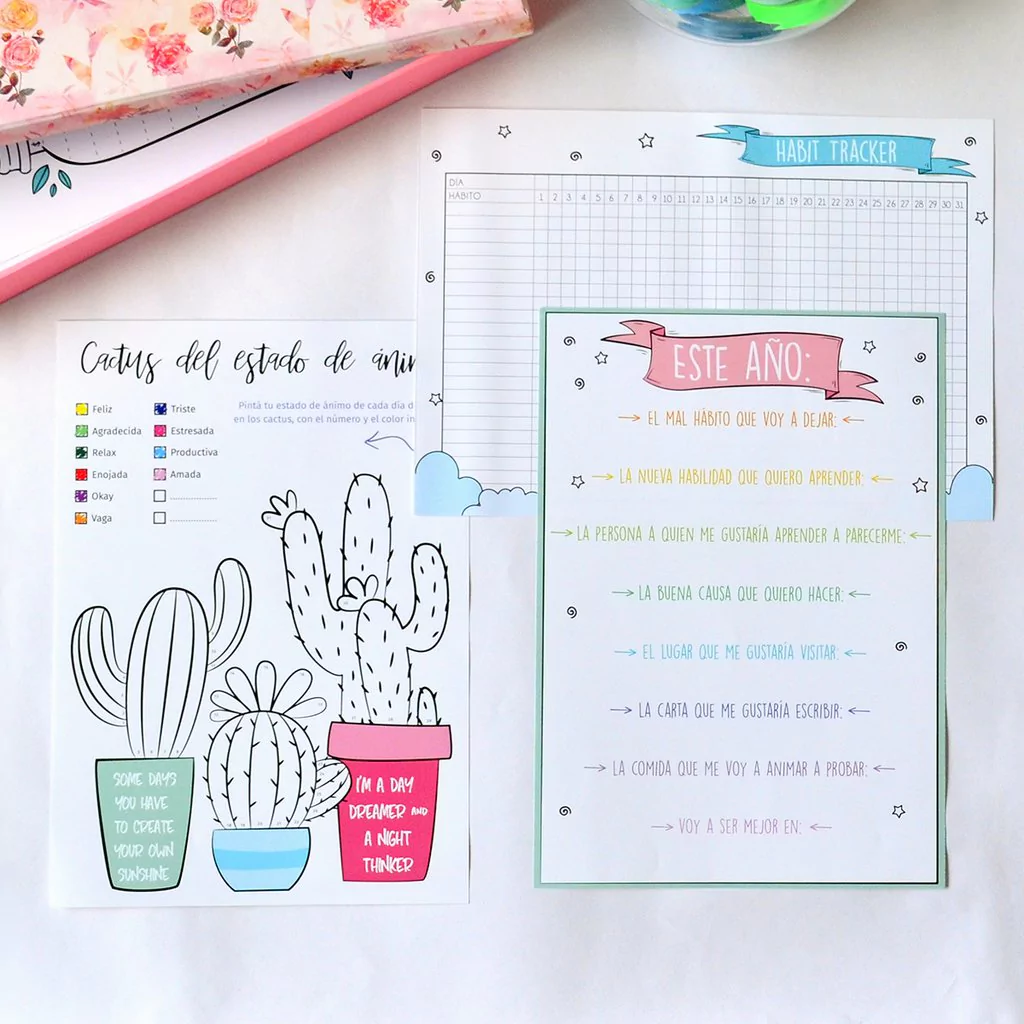 HABIT TRACKER
DÍA
HÁBITO 1 2 3 4 5 6 7 8 9 10 11 12 13 14 15 16 17 18 19 20 21 22 23 24 25 26 27 28 29 30 31
Cactus del estado de
Feliz
Agradecida
Relax
Enojada
Okay
Vaga
Triste
Estresada
Productiva
Amada
Pintá tu estado de ánimo de cada día
en los cactus, con el número y el color
SOME DAYS
YOU HAVE
TO CREATE
YOUR OWN
SUNSHINE
I'M A DAY
DREAMER AND
A NIGHT
THINKER
ESTE AÑO:
EL MAL HÁBITO QUE VOY A DEJAR:
LA NUEVA HABILIDAD QUE QUIERO APRENDER:
LA PERSONA A QUIEN ME GUSTARÍA APRENDER A PARECERME:
LA BUENA CAUSA QUE QUIERO HACER:
EL LUGAR QUE ME GUSTARÍA VISITAR:
LA CARTA QUE ME GUSTARÍA ESCRIBIR:
LA COMIDA QUE ME VOY A ANIMAR A PROBAR:
VOY A SER MEJOR EN: